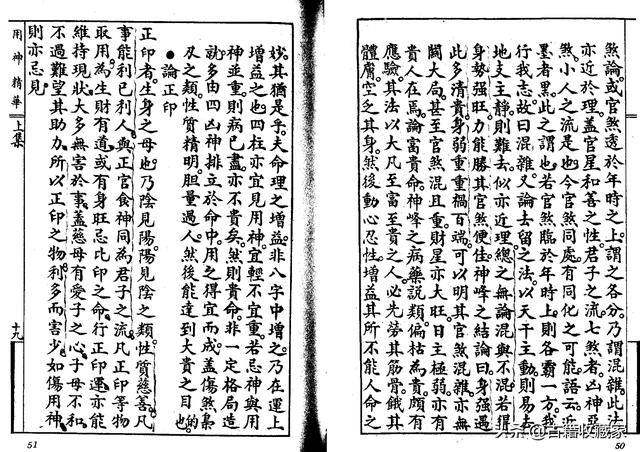 煞論或官煞透於年時之上謂之各分乃謂混雜此法
亦近於理蓋官星和善之性君子之流七煞者凶神惡
煞小人之流是也今官煞同處有同化之可能語云近
墨者黑此之謂也若官煞臨於年時上則各霸一方我
行我志故曰混雜又論去留之法以天干主動則易去
地支主靜則難去似亦近理總之無論混與不混若得
身勢強旺力能勝其官煞便佳神峰之結論曰身強遇
此多清貴身弱重重禍百端可以明其官煞混雜亦無
關大局甚至官煞混且重財星亦大旺日主極弱亦有
貴人在焉論富貴命神峰之病藥說類偏枯為貴頗有
應驗其法以大凡至富至貴之人必先勞其筋骨餓其
體膚空乏其身然後動心忍性增益其所不能人命之
50
妙其猶是乎夫命理之增益非八字中增之乃在運上
增益之也四柱亦宜見用神宜輕不宜重若忌神與用
神並重則病已盡亦不貴矣然則貴命非一定格局造
就多由四凶神排立於命中用之得宜而成蓋傷煞梟
刃之類性質精明胆量過人然後能達到大貴之目的也
●論正印
正印者生身之母也乃陰見陽陽見陰之類性質慈善凡
事能利己利人與正官食神同為君子之流凡正印等物
取用為生財有道或有身旺忌比印之命行正印運亦能
維持現狀大多無害於事蓋慈母有愛子之心子母不和
不過難望其助力所以正印之物利多而害少如傷用神
則亦忌見
用神精華 上集
十九
51
头条 @古籍收藏家